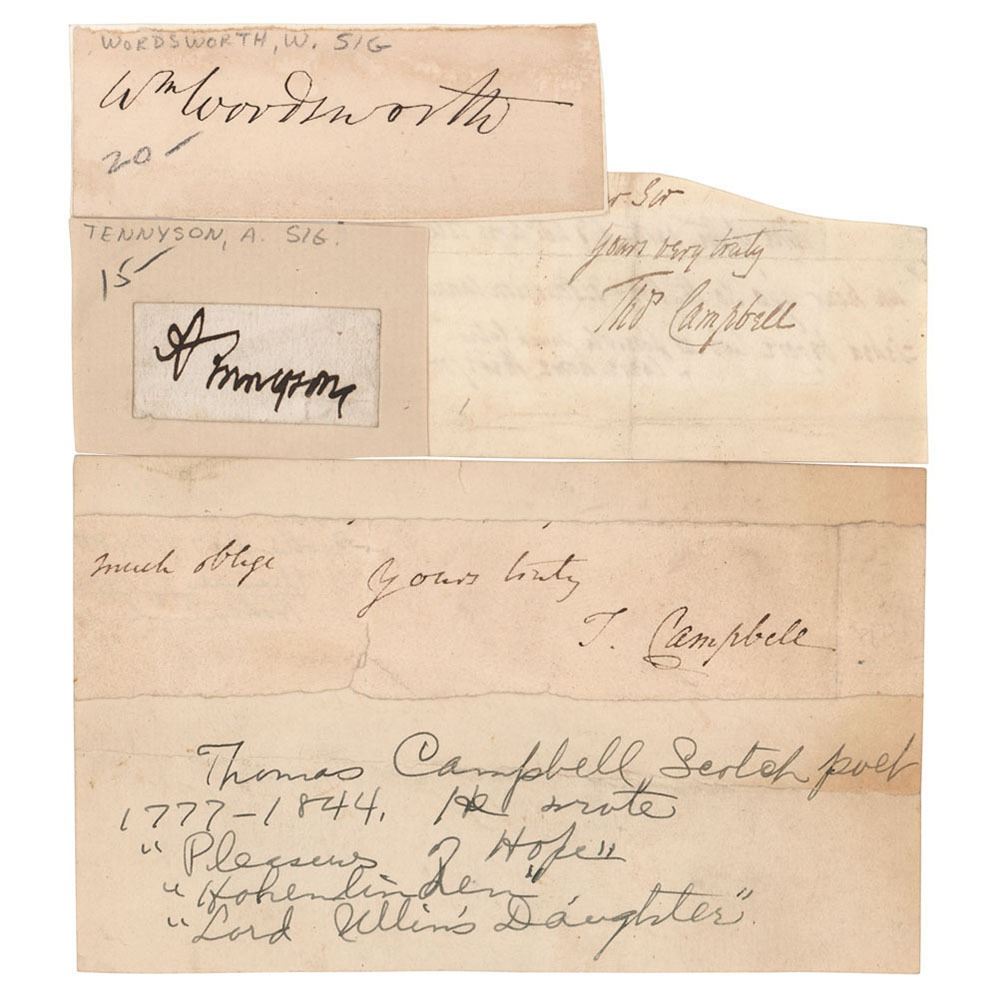 WORDSWORTH, W. SIG
Wm Wordsworth
20-
r Sir
yours very truly
Thos Campbell
TENNYSON, A. SIG.
15
A Tennyson
much oblige
yours truly
T. Campbell
Thomas Campbell, Scotch poet
1777-1844. He wrote
"Pleasures of Hope"
"Hohenlinden"
"Lord Ullin's Daughter".